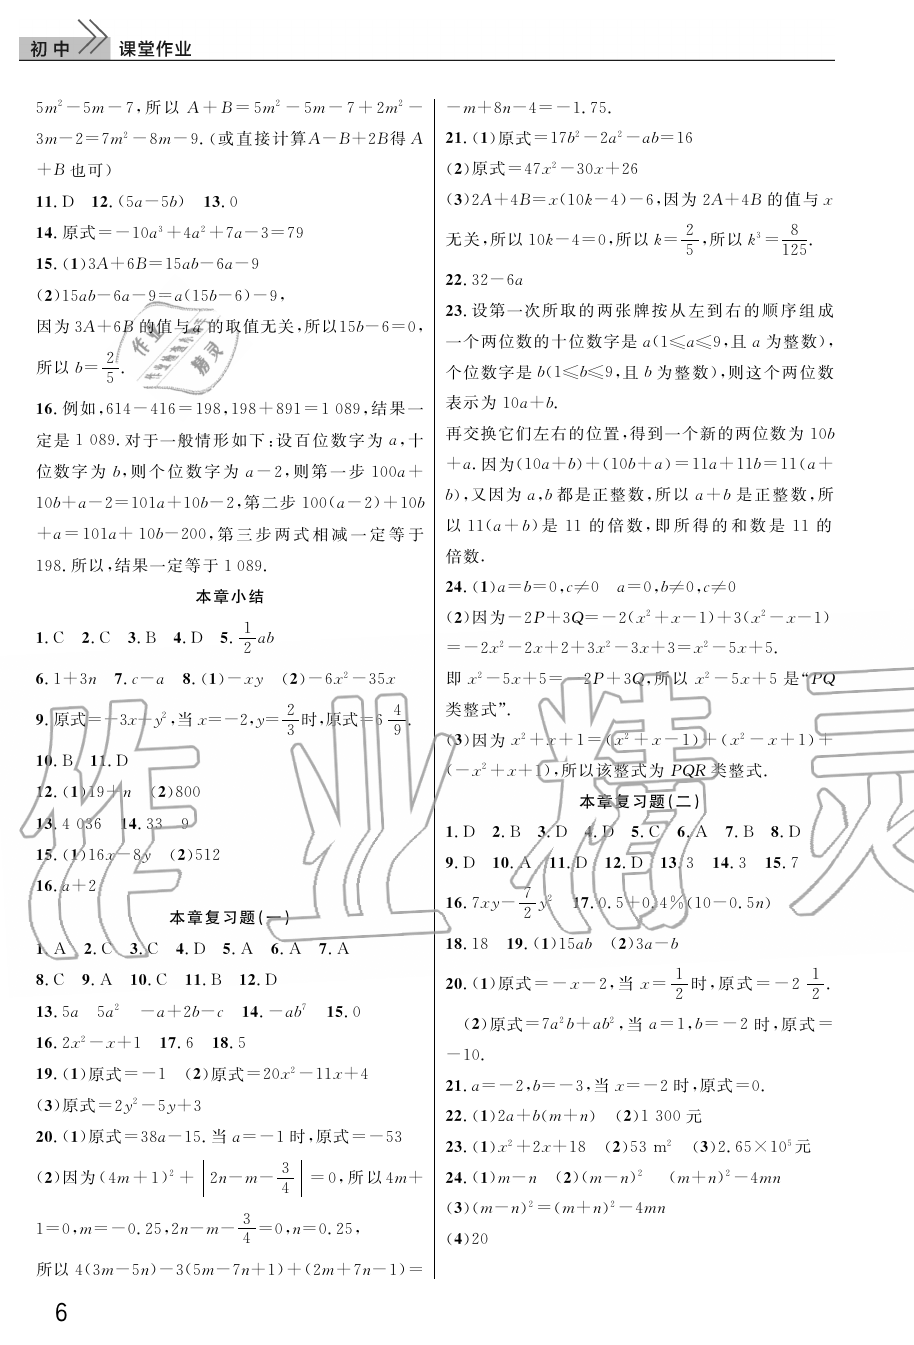 初中 课堂作业
5m²－5m－7,所以 A＋B＝5m²－5m－7＋2m²－
3m－2＝7m²－8m－9.(或直接计算A－B＋2B得 A
＋B 也可)
11. D 12. (5a－5b) 13. 0
14. 原式＝－10a³＋4a²＋7a－3＝79
15. (1)3A＋6B＝15ab－6a－9
(2)15ab－6a－9＝a(15b－6)－9,
因为 3A＋6B 的值与 a 的取值无关,所以15b－6＝0,
所以 b＝2/5.
16. 例如,614－416＝198,198＋891＝1 089,结果一
定是 1 089. 对于一般情形如下:设百位数字为 a,十
位数字为 b,则个位数字为 a－2,则第一步 100a＋
10b＋a－2＝101a＋10b－2,第二步 100(a－2)＋10b
＋a＝101a＋10b－200,第三步两式相减一定等于
198. 所以,结果一定等于 1 089.
本章小结
1. C 2. C 3. B 4. D 5. 1/2 ab
6. 1＋3n 7. c－a 8. (1)－xy (2)－6x²－35x
9. 原式＝－3x＋y²,当 x＝－2,y＝2/3 时,原式＝6 4/9.
10. B 11. D
12. (1)19＋n (2)800
13. 4 036 14. 33 9
15. (1)16x－8y (2)512
16. a＋2
本章复习题(一)
1. A 2. C 3. C 4. D 5. A 6. A 7. A
8. C 9. A 10. C 11. B 12. D
13. 5a 5a² －a＋2b－c 14. －ab⁷ 15. 0
16. 2x²－x＋1 17. 6 18. 5
19. (1)原式＝－1 (2)原式＝20x²－11x＋4
(3)原式＝2y²－5y＋3
20. (1)原式＝38a－15. 当 a＝－1 时,原式＝－53
(2)因为(4m＋1)²＋|2n－m－3/4|＝0,所以4m＋
1＝0,m＝－0.25,2n－m－3/4＝0,n＝0.25,
所以 4(3m－5n)－3(5m－7n＋1)＋(2m＋7n－1)＝
－m＋8n－4＝－1.75.
21. (1)原式＝17b²－2a²－ab＝16
(2)原式＝47x²－30x＋26
(3)2A＋4B＝x(10k－4)－6,因为 2A＋4B 的值与 x
无关,所以 10k－4＝0,所以 k＝2/5,所以 k³＝8/125.
22. 32－6a
23. 设第一次所取的两张牌按从左到右的顺序组成
一个两位数的十位数字是 a(1≤a≤9,且 a 为整数),
个位数字是 b(1≤b≤9,且 b 为整数),则这个两位数
表示为 10a＋b.
再交换它们左右的位置,得到一个新的两位数为 10b
＋a. 因为(10a＋b)＋(10b＋a)＝11a＋11b＝11(a＋
b),又因为 a,b 都是正整数,所以 a＋b 是正整数,所
以 11(a＋b)是 11 的倍数,即所得的和数是 11 的
倍数.
24. (1)a＝b＝0,c≠0 a＝0,b≠0,c≠0
(2)因为－2P＋3Q＝－2(x²＋x－1)＋3(x²－x－1)
＝－2x²－2x＋2＋3x²－3x＋3＝x²－5x＋5.
即 x²－5x＋5＝－2P＋3Q,所以 x²－5x＋5 是“PQ
类整式”.
(3)因为 x²＋x＋1＝(x²＋x－1)＋(x²－x＋1)＋
(－x²＋x＋1),所以该整式为 PQR 类整式.
本章复习题(二)
1. D 2. B 3. D 4. D 5. C 6. A 7. B 8. D
9. D 10. A 11. D 12. D 13. 3 14. 3 15. 7
16. 7xy－7/2 y² 17. 0.5＋0.4%(10－0.5n)
18. 18 19. (1)15ab (2)3a－b
20. (1)原式＝－x－2,当 x＝1/2 时,原式＝－2 1/2.
(2)原式＝7a²b＋ab²,当 a＝1,b＝－2 时,原式＝
－10.
21. a＝－2,b＝－3,当 x＝－2 时,原式＝0.
22. (1)2a＋b(m＋n) (2)1 300 元
23. (1)x²＋2x＋18 (2)53 m² (3)2.65×10⁵元
24. (1)m－n (2)(m－n)² (m＋n)²－4mn
(3)(m－n)²＝(m＋n)²－4mn
(4)20
6
作业精灵
作业
精灵